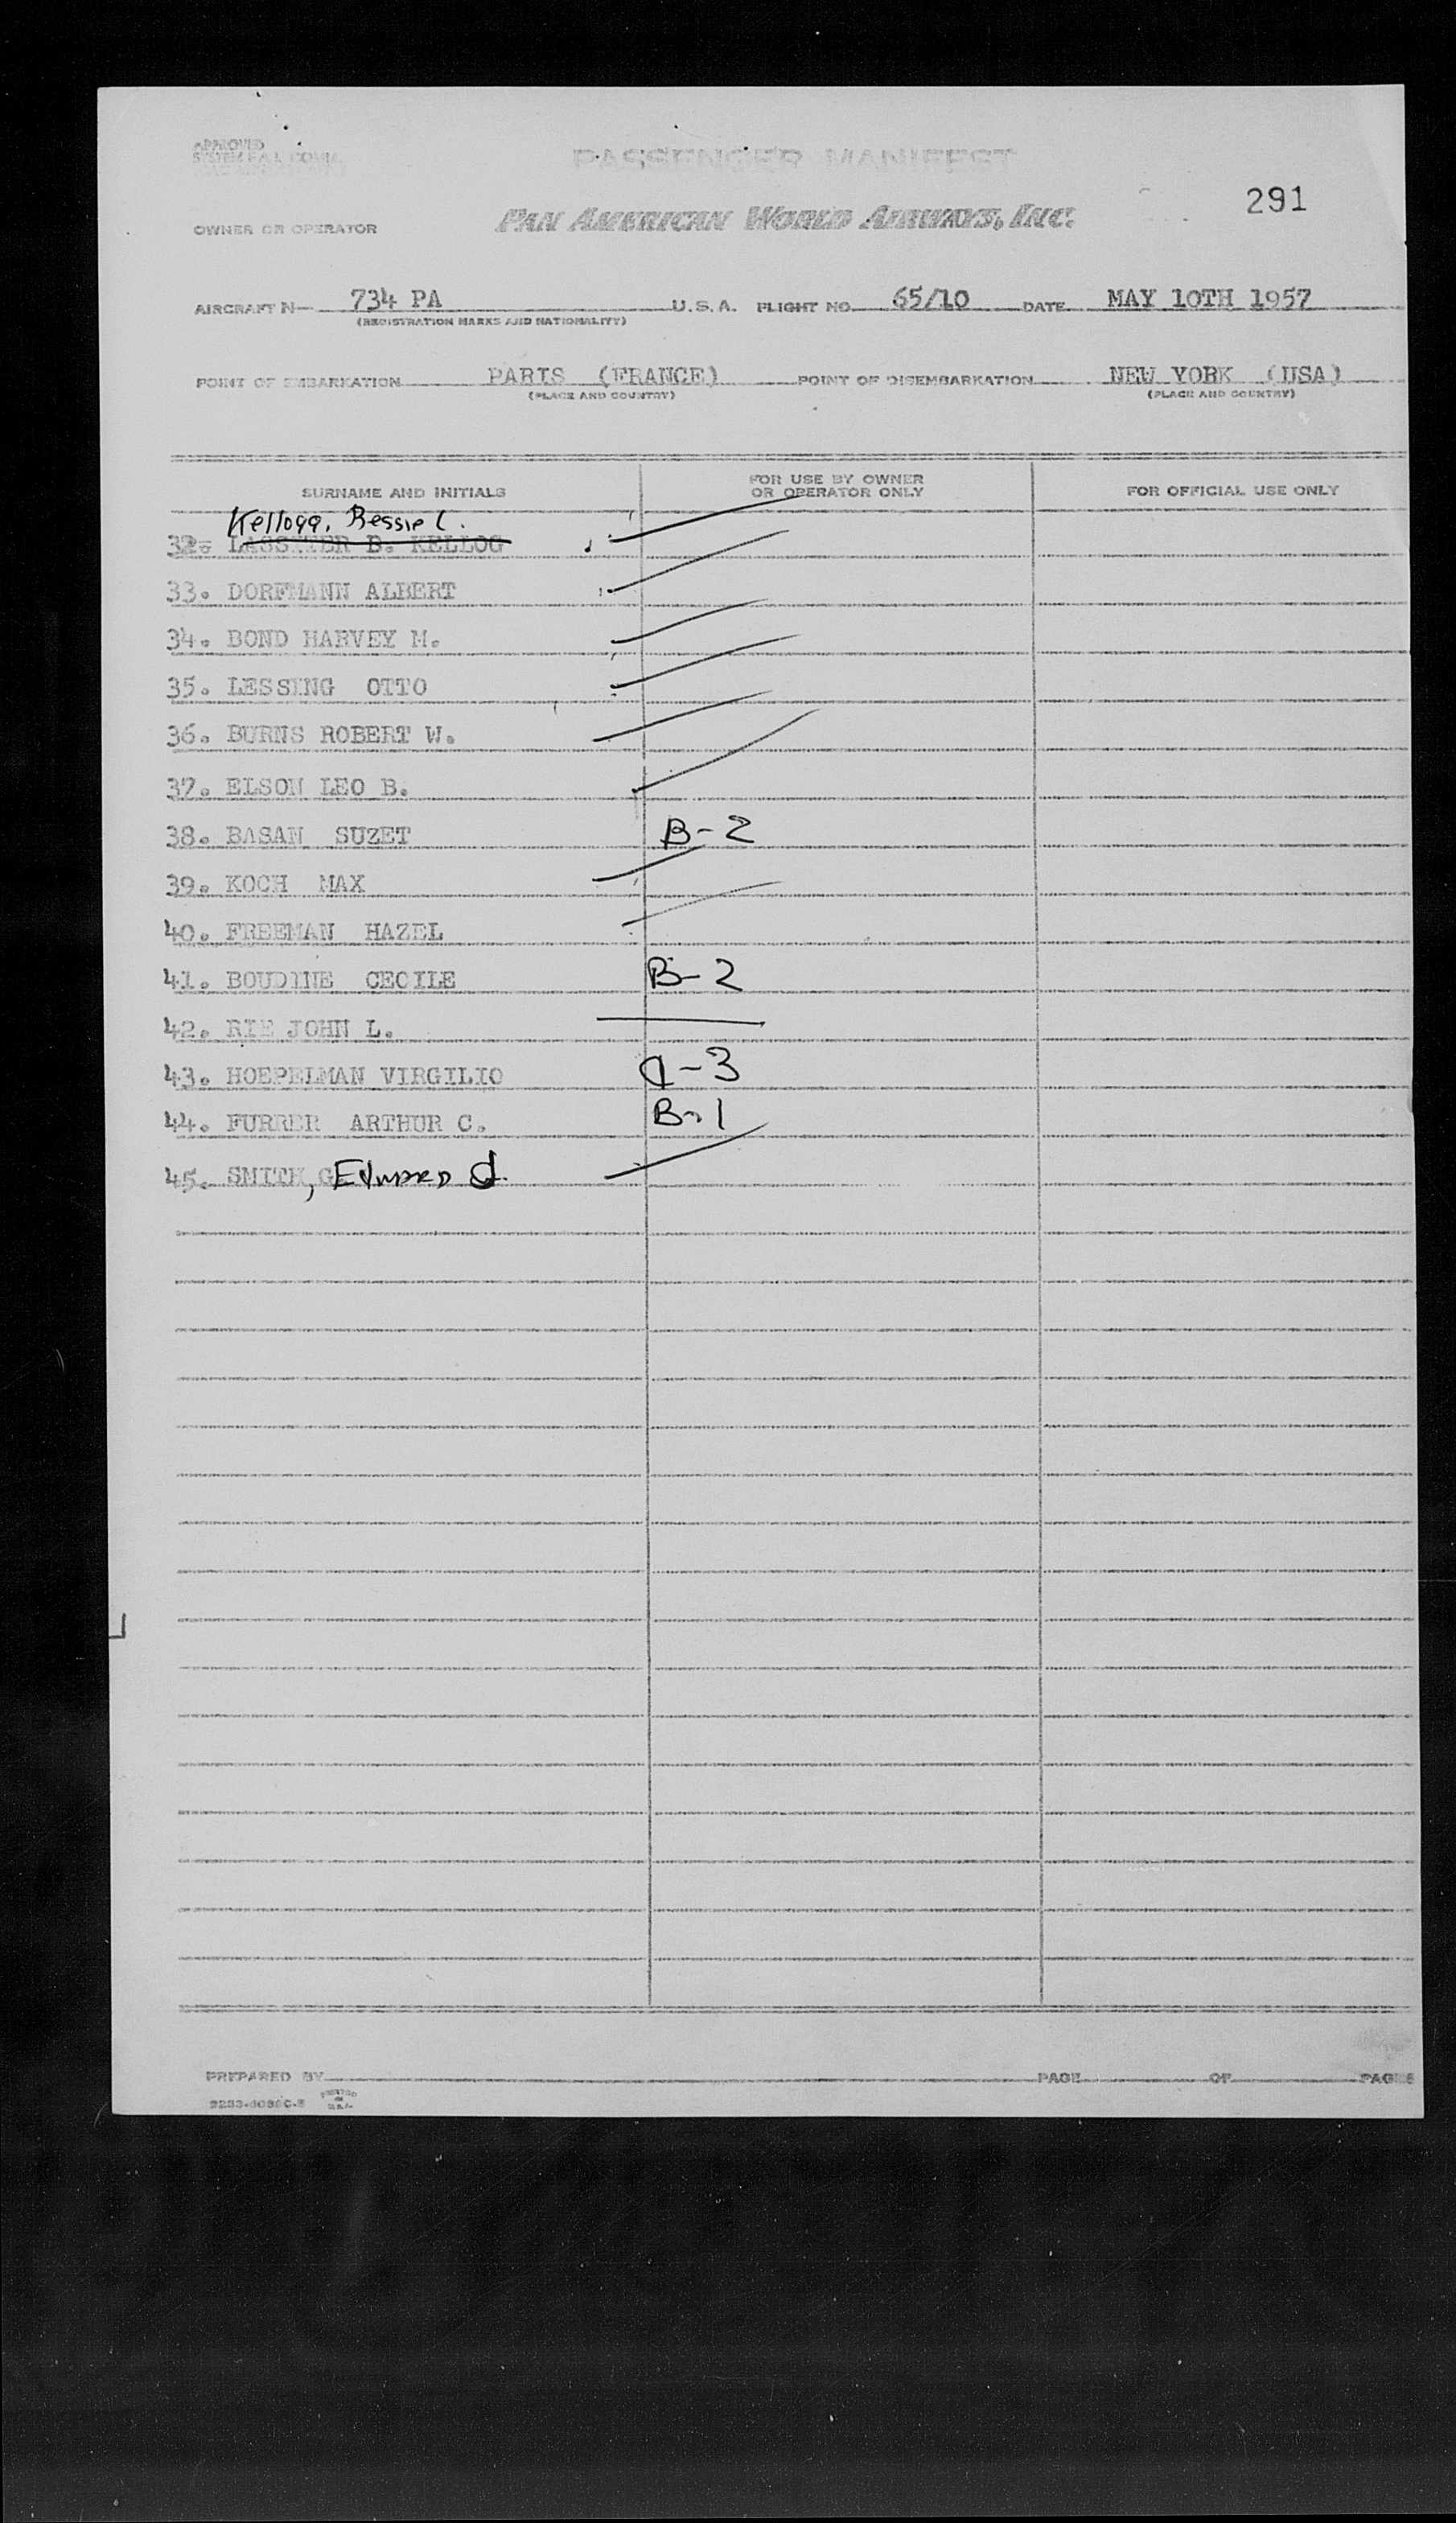 APPROVED
SYSTEM F.A.L. COMM.
PASSENGER MANIFEST
291
OWNER OR OPERATOR PAN AMERICAN WORLD AIRWAYS, INC.
AIRCRAFT N— 734 PA U.S.A. FLIGHT NO. 65/10 DATE MAY 10TH 1957
(REGISTRATION MARKS AND NATIONALITY)
POINT OF EMBARKATION PARIS (FRANCE) POINT OF DISEMBARKATION NEW YORK (USA)
(PLACE AND COUNTRY) (PLACE AND COUNTRY)
SURNAME AND INITIALS FOR USE BY OWNER OR OPERATOR ONLY FOR OFFICIAL USE ONLY
Kellogg, Bessie L.
32. LASSITER B. KELLOG
33. DORFMANN ALBERT
34. BOND HARVEY M.
35. LESSING OTTO
36. BURNS ROBERT W.
37. ELSON LEO B.
38. BASAN SUZET B-2
39. KOCH MAX
40. FREEMAN HAZEL
41. BOUDINE CECILE B-2
42. RIE JOHN L.
43. HOEPELMAN VIRGILIO C-3
44. FURRER ARTHUR C. B-1
45. SMITH, Edward J.
PREPARED BY PAGE OF PAGES
PRINTED IN U.S.A.